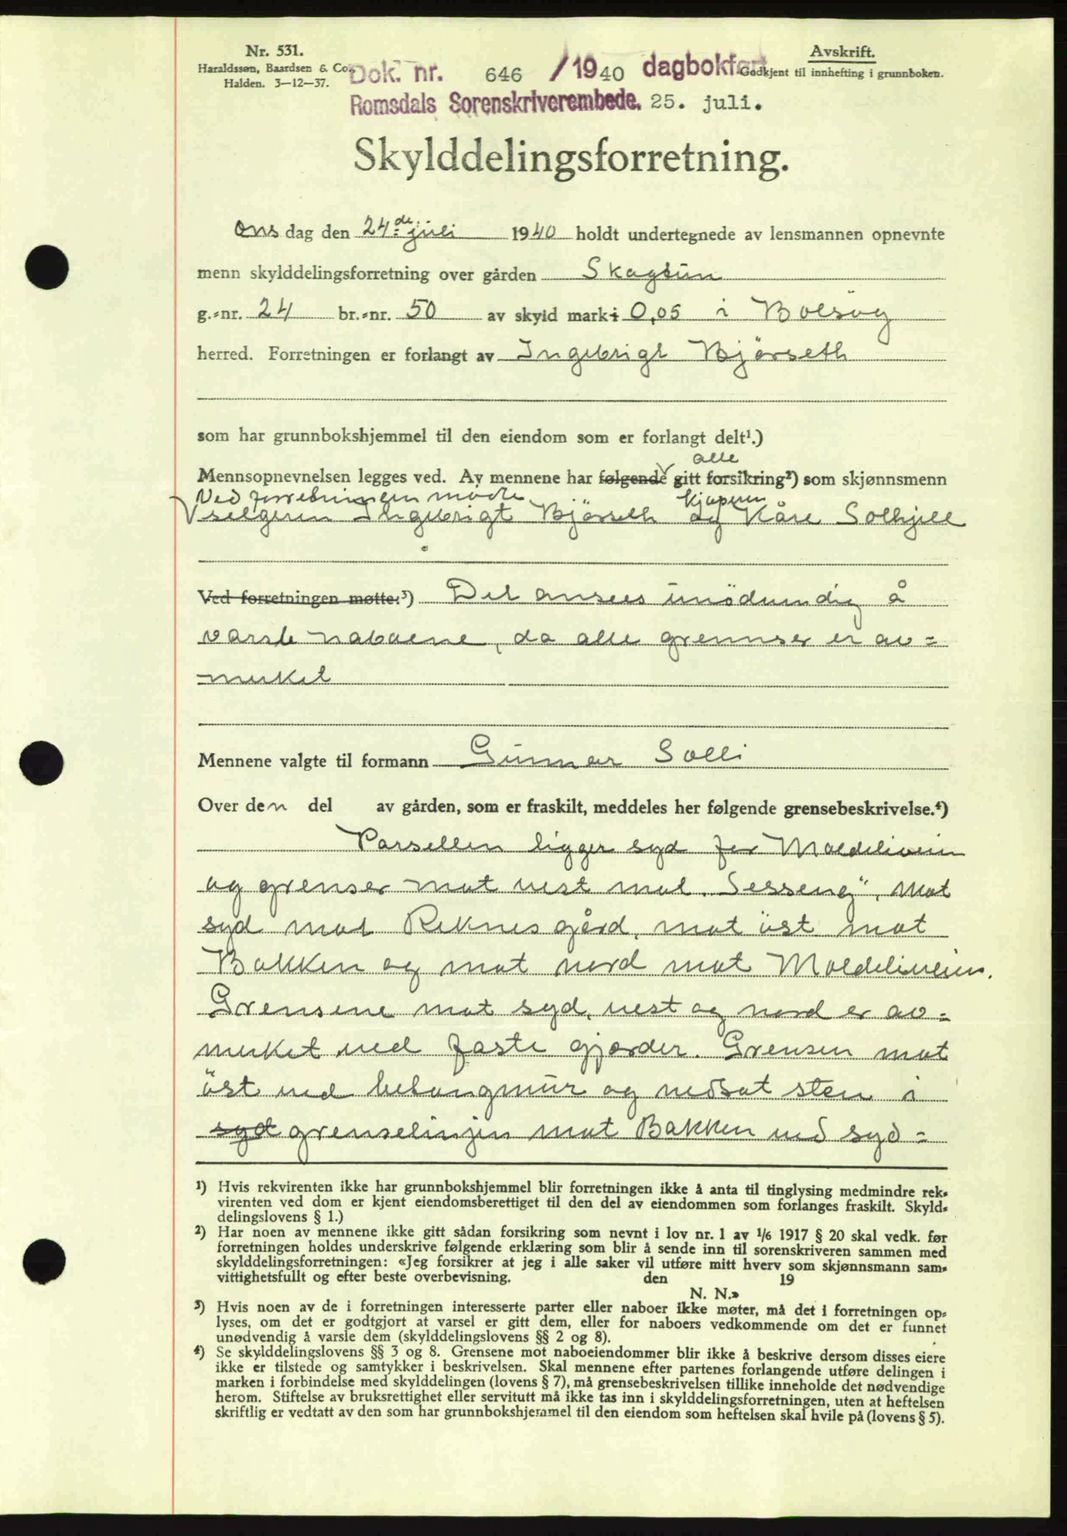 Nr. 531.
Haraldssøn, Baardsen & Co.
Halden. 3—12—37.
Avskrift.
Godkjent til innhefting i grunnboken.
Dok. nr. 646 /1940 dagbokført
Romsdals Sorenskriverembede. 25. juli.
Skylddelingsforretning.
Ons dag den 24de juli 1940 holdt undertegnede av lensmannen opnevnte
menn skylddelingsforretning over gården Skagtun
g.-nr. 24 br.-nr. 50 av skyld mark 0,05 i Bolsøy
herred. Forretningen er forlangt av Ingebrigt Bjørseth
som har grunnbokshjemmel til den eiendom som er forlangt delt¹.)
alle
Mennsopnevnelsen legges ved. Av mennene har følgende gitt forsikring²) som skjønnsmenn
Ved forretningen møtte kjøperen
selgeren Ingebrigt Bjørseth og Kåre Solhjell
Ved forretningen møtte:³) Det ansees unödvendig å
varsle naboene, da alle grennser er av=
merket
Mennene valgte til formann Gunnar Solli
Over den del av gården, som er fraskilt, meddeles her følgende grensebeskrivelse.⁴)
Parsellen ligger syd for Moldeliveien
og grenser mot vest mot "Sesseng", mot
syd mot Reknes gård, mot öst mot
Bakken og mot nord mot Moldeliveien.
Grensene mot syd, vest og nord er av=
merket ved faste gjerder. Grensen mot
öst ved betongmur og nedsat sten i
syd grenselinjen mot Bakken ved syd=
¹) Hvis rekvirenten ikke har grunnbokshjemmel blir forretningen ikke å anta til tinglysing medmindre rek-
virenten ved dom er kjent eiendomsberettiget til den del av eiendommen som forlanges fraskilt. Skyld-
delingslovens § 1.)
²) Har noen av mennene ikke gitt sådan forsikring som nevnt i lov nr. 1 av 1/6 1917 § 20 skal vedk. før
forretningen holdes underskrive følgende erklæring som blir å sende inn til sorenskriveren sammen med
skylddelingsforretningen: «Jeg forsikrer at jeg i alle saker vil utføre mitt hverv som skjønnsmann sam-
vittighetsfullt og efter beste overbevisning. den 19
N. N.»
³) Hvis noen av de i forretningen interesserte parter eller naboer ikke møter, må det i forretningen op-
lyses, om det er godtgjort at varsel er gitt dem, eller for naboers vedkommende om det er funnet
unødvendig å varsle dem (skylddelingslovens §§ 2 og 8).
⁴) Se skylddelingslovens §§ 3 og 8. Grensene mot naboeiendommer blir ikke å beskrive dersom disses eiere
ikke er tilstede og samtykker i beskrivelsen. Skal mennene efter partenes forlangende utføre delingen i
marken i forbindelse med skylddelingen (lovens § 7), må grensebeskrivelsen tillike inneholde det nødvendige
herom. Stiftelse av bruksrettighet eller servitutt må ikke tas inn i skylddelingsforretningen, uten at heftelsen
skriftlig er vedtatt av den som har grunnbokshjemmel til den eiendom som heftelsen skal hvile på (lovens § 5).